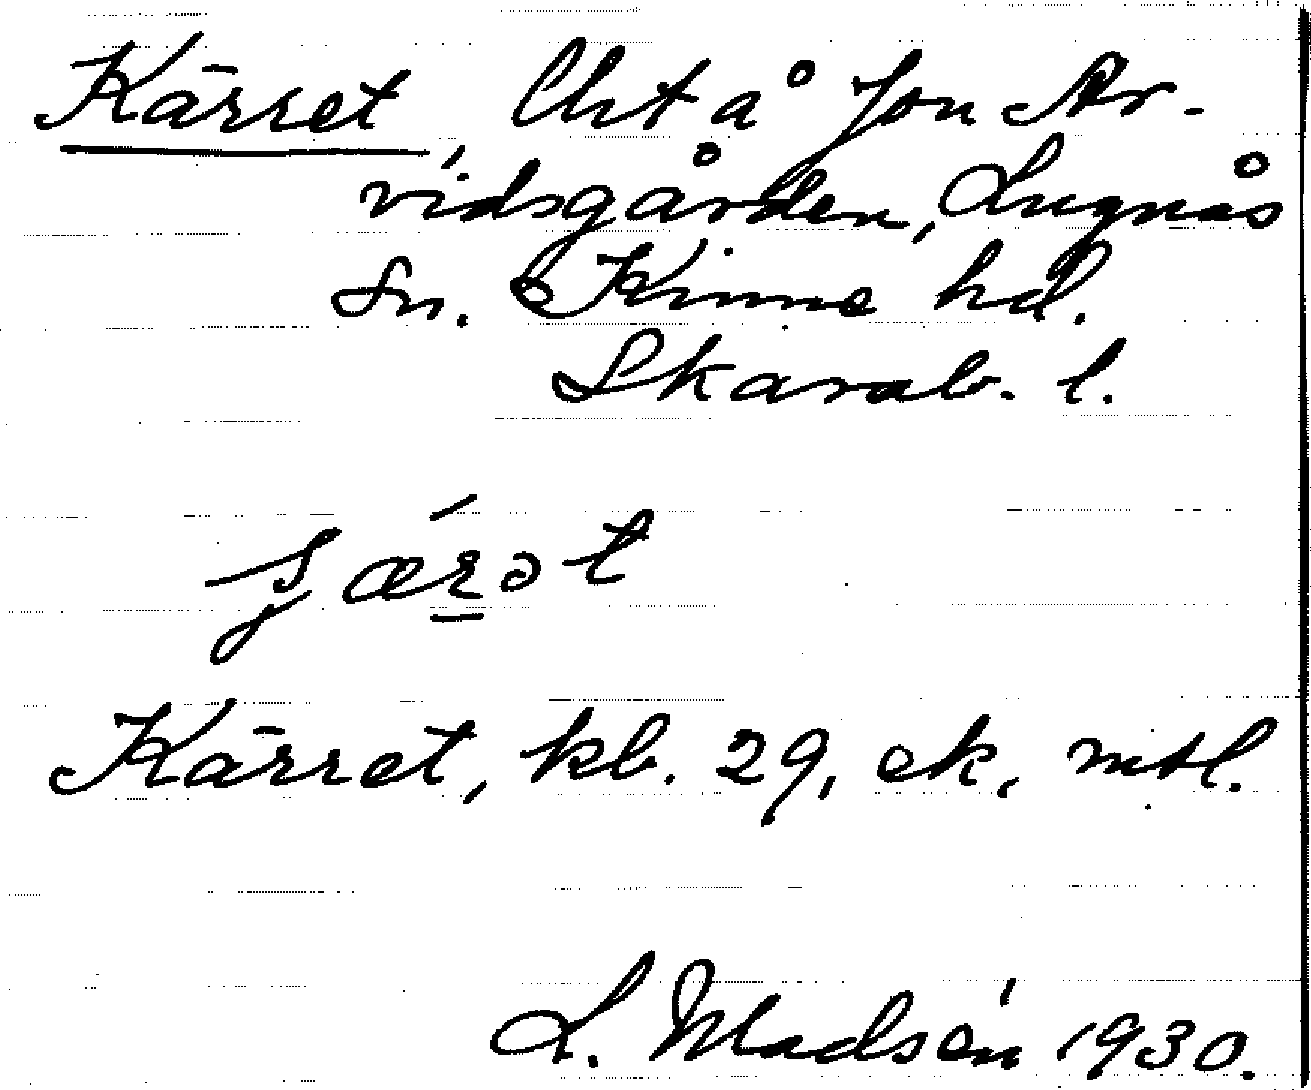 Kärret, Cht å Jon Ar-
vidsgården, Lugnås
Sn. Kinne hd.
Skarab. l.
Kärret, kb. 29, ek. mtl.
L. Madsén 1930.